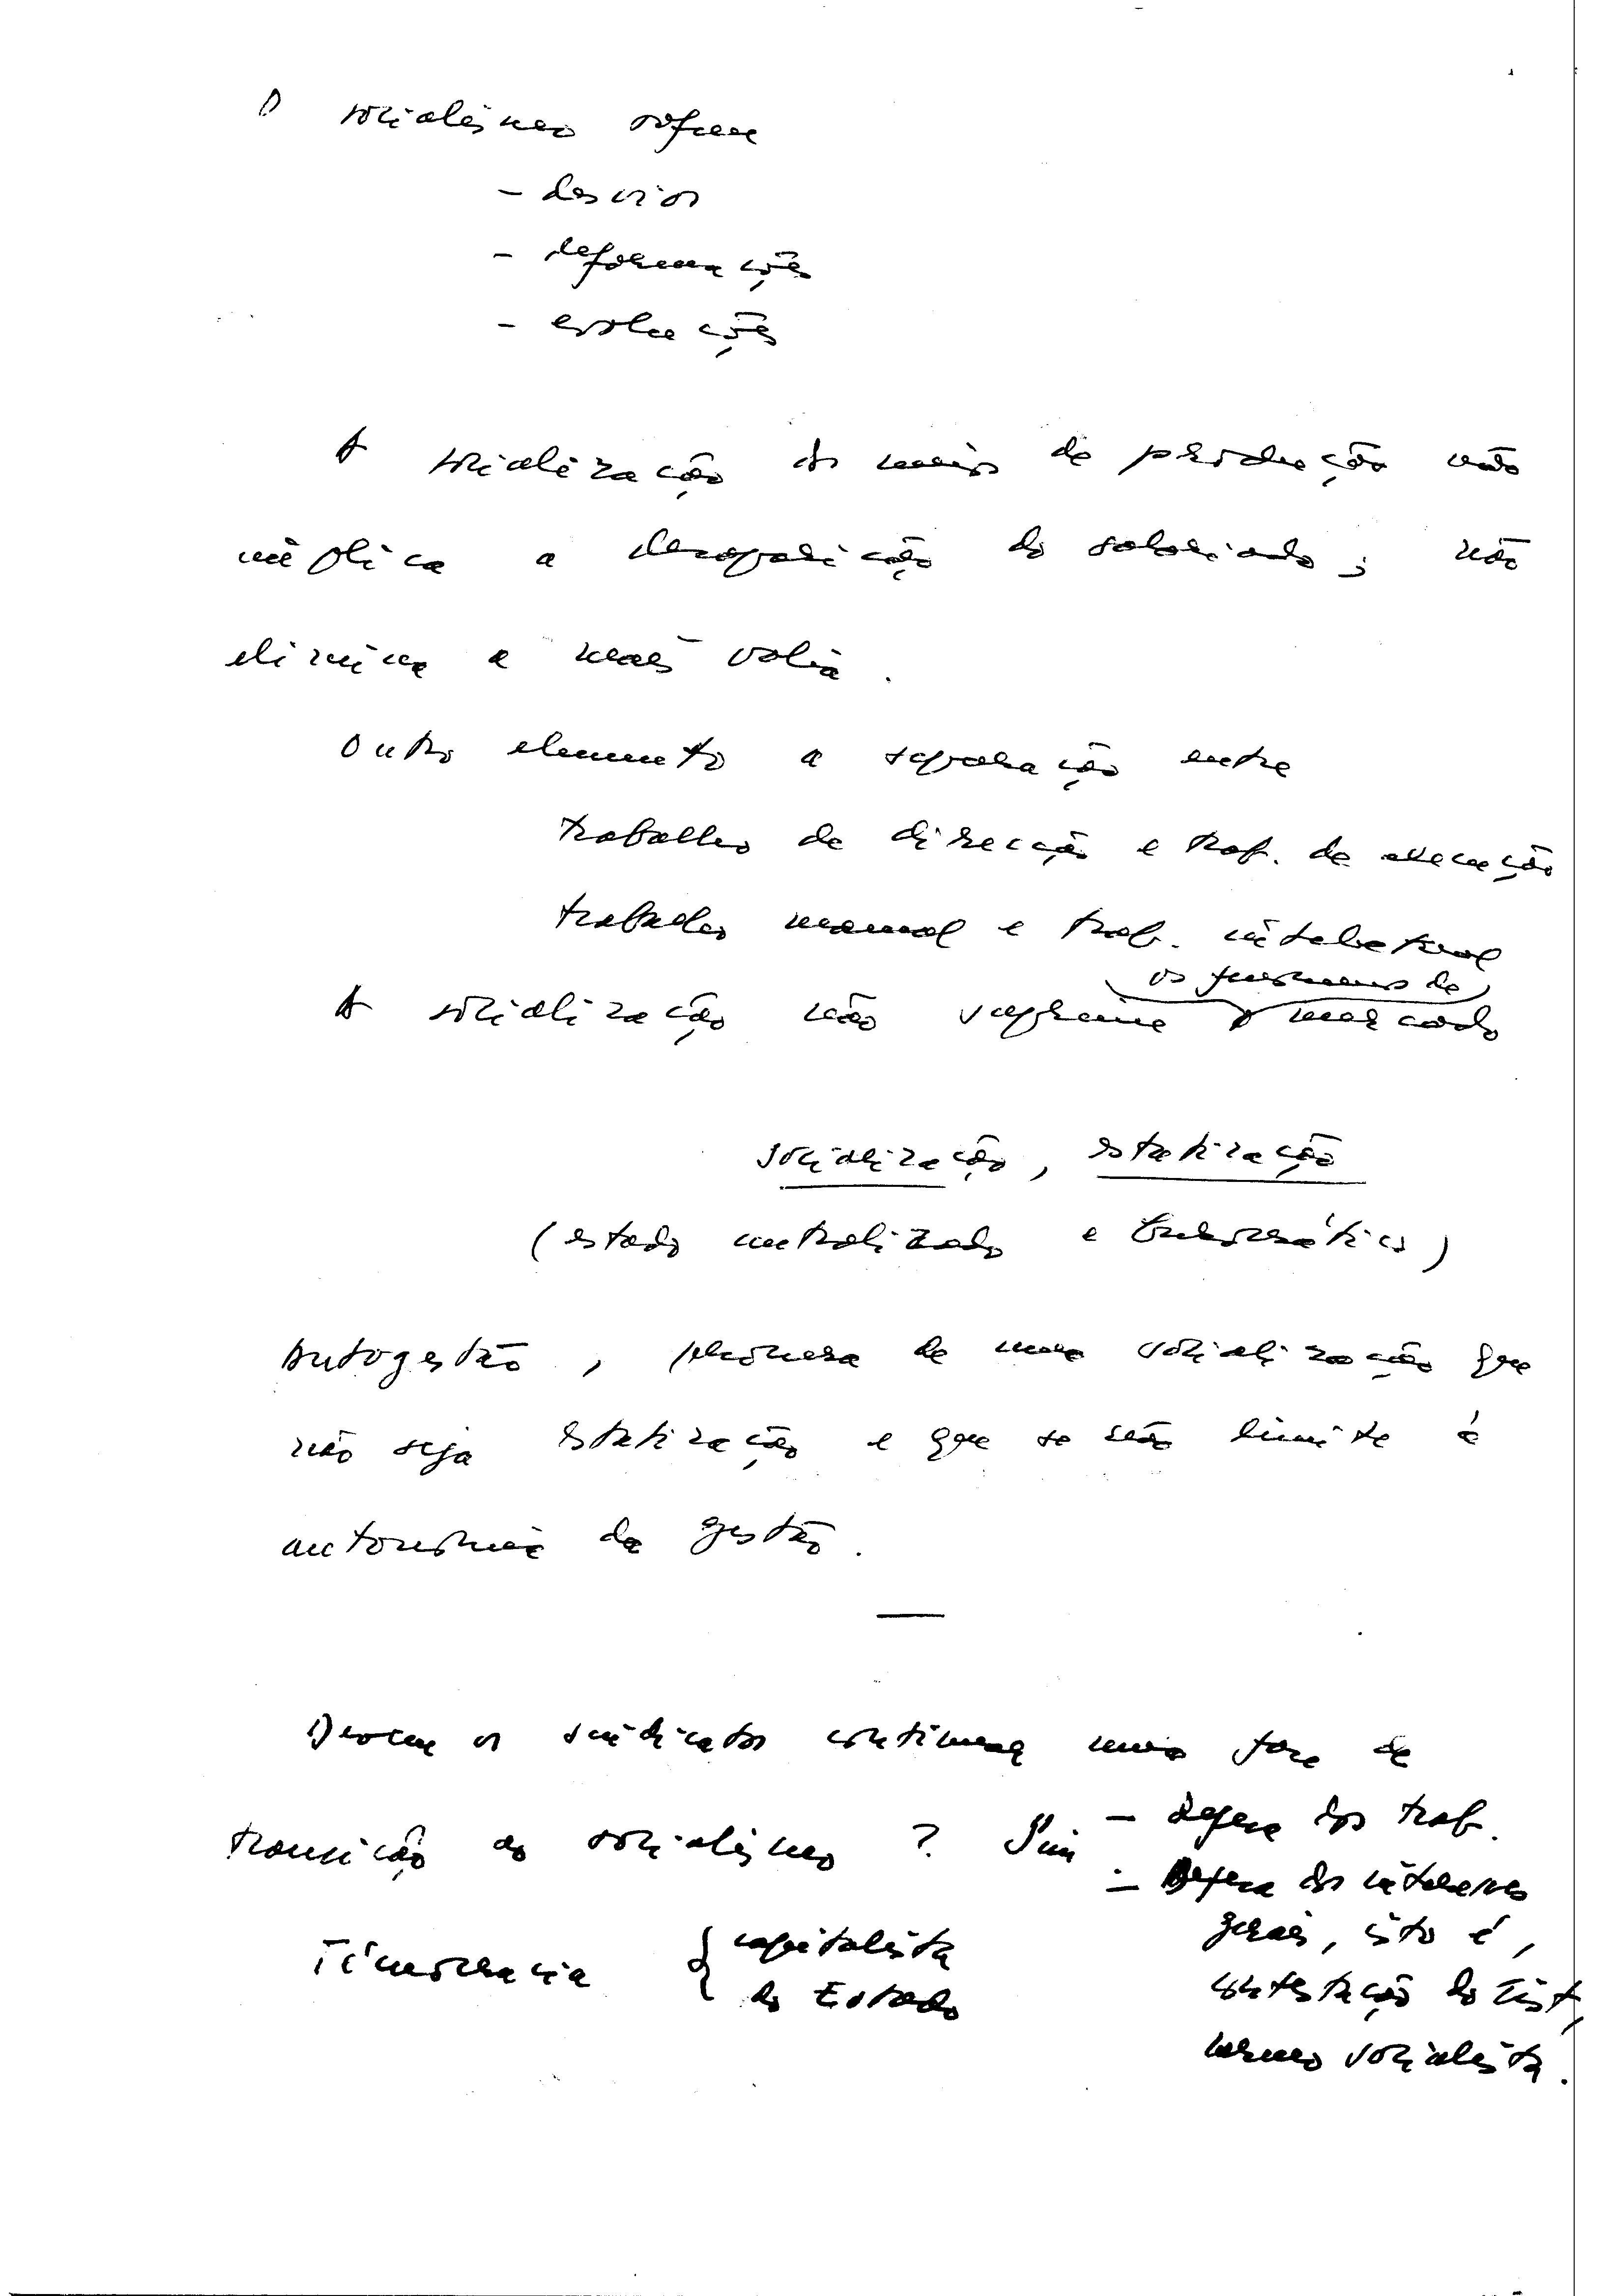 O socialismo sofreu
- desvios
- deformações
- evoluções
A socialização dos meios de produção não
implica a desaparição do salariado; não
elimina a mais valia.
Outro elemento a separação entre
trabalho de direcção e trab. de execução
trabalho manual e trab. intelectual
os fenómenos de
A socialização não suprime o mercado
socialização, estatização
(estado centralizado e burocrático)
Autogestão, procura de uma socialização que
não seja estatização e que se não limite à
autonomia da gestão.
Devem os sindicatos continuar numa fase de
transição ao socialismo? Sim - Defesa dos trab.
- Defesa dos interesses
gerais, isto é,
contestação do sist,
mesmo socialista.
Tecnocracia { capitalista
do Estado